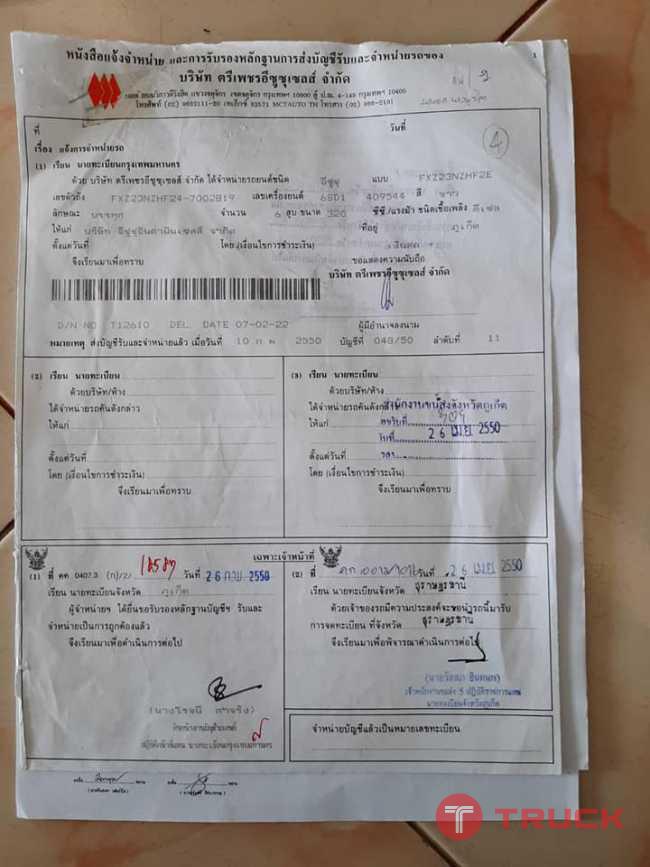 หนังสือแจ้งจำหน่าย และการรับรองหลักฐานการส่งบัญชีรับและจำหน่ายรถของ
1
บริษัท ตรีเพชรอีซูซุเซลส์ จำกัด
ที่ วันที่
4
เรื่อง แจ้งการจำหน่ายรถ
(1) เรียน นายทะเบียนกรุงเทพมหานคร
ด้วย บริษัท ตรีเพชรอีซูซุเซลส์ จำกัด ได้จำหน่ายรถยนต์ชนิด อีซูซุ แบบ FXZ23NZHF2E
เลขตัวถัง FXZ23NZHF24-7002819 เลขเครื่องยนต์ 6SD1 409544 สี ขาว
ลักษณะ บรรทุก จำนวน 6 สูบ ขนาด 320 ซีซี./แรงม้า ชนิดเชื้อเพลิง ดีเซล
ให้แก่ บริษัท จำกัด ที่อยู่ ภูเก็ต
ตั้งแต่วันที่ โดย (เงื่อนไขการชำระเงิน)
จึงเรียนมาเพื่อทราบ ขอแสดงความนับถือ
บริษัท ตรีเพชรอีซูซุเซลส์ จำกัด
D/N NO T12610 DEL. DATE 07-02-22 ผู้มีอำนาจลงนาม
หมายเหตุ ส่งบัญชีรับและจำหน่ายแล้ว เมื่อวันที่ 10 ก พ 2550 บัญชีที่ 048/50 ลำดับที่ 11
(2) เรียน นายทะเบียน
ด้วยบริษัท/ห้าง
ได้จำหน่ายรถคันดังกล่าว
ให้แก่
ตั้งแต่วันที่
โดย (เงื่อนไขการชำระเงิน)
จึงเรียนมาเพื่อทราบ
(3) เรียน นายทะเบียน
ด้วยบริษัท/ห้าง
ได้จำหน่ายรถคันดังกล่าว
สำนักงานขนส่งจังหวัดภูเก็ต
ให้แก่
เลขรับที่
วันที่ 26 เม.ย. 2550
เวลา
ตั้งแต่วันที่
โดย (เงื่อนไขการชำระเงิน)
จึงเรียนมาเพื่อทราบ
เฉพาะเจ้าหน้าที่
(1) ที่ คค 0407.3 (ท)/2/ วันที่ 26 ก.พ. 2550
เรียน นายทะเบียนจังหวัด ภูเก็ต
ผู้จำหน่ายฯ ได้ยื่นขอรับรองหลักฐานบัญชีฯ รับและ
จำหน่ายเป็นการถูกต้องแล้ว
จึงเรียนมาเพื่อดำเนินการต่อไป
(2) ที่ วันที่ 26 เม.ย. 2550
เรียน นายทะเบียนจังหวัด สุราษฎร์ธานี
ด้วยเจ้าของรถมีความประสงค์จะขอนำรถนี้มารับ
การจดทะเบียน ที่จังหวัด สุราษฎร์ธานี
จึงเรียนมาเพื่อพิจารณาดำเนินการต่อไป
นายทะเบียนจังหวัดภูเก็ต
จำหน่ายบัญชีแล้วเป็นหมายเลขทะเบียน
TRUCK